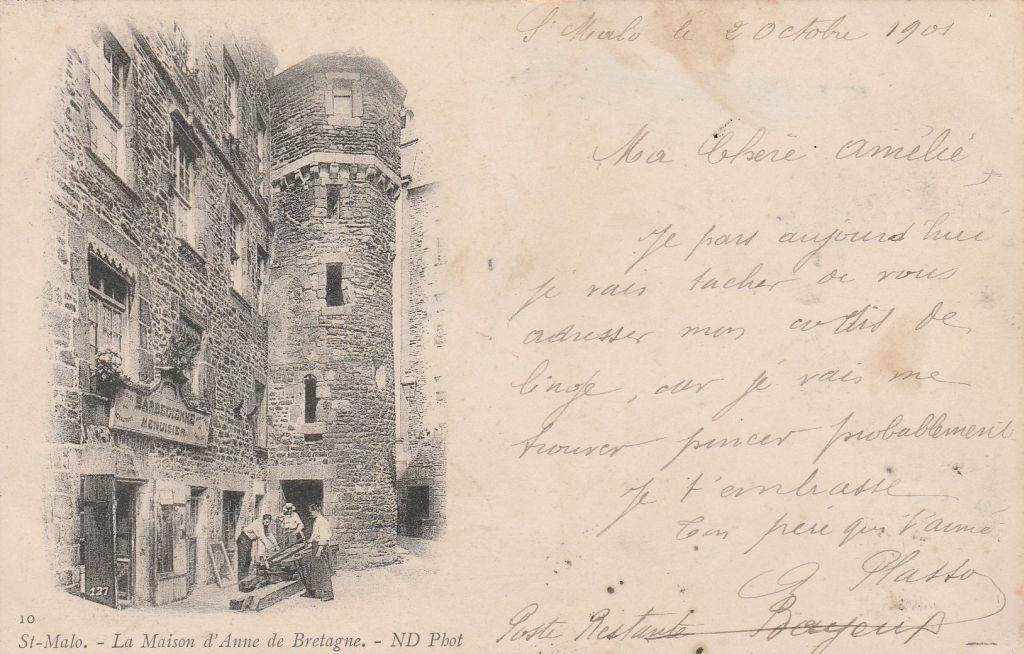 St Malo le 2 Octobre 1901
Ma Chère Amélie
Je pars aujourd'hui
je vais tacher de vous
adresser mon de
linge, car je vais me
trouver pincer probablement
Je t'embrasse
Ton père qui t'aime
G Plasso
Poste Restante Bayeux
BARBEDIENNE
MENUISIER
127
10
St-Malo. - La Maison d'Anne de Bretagne. - ND Phot